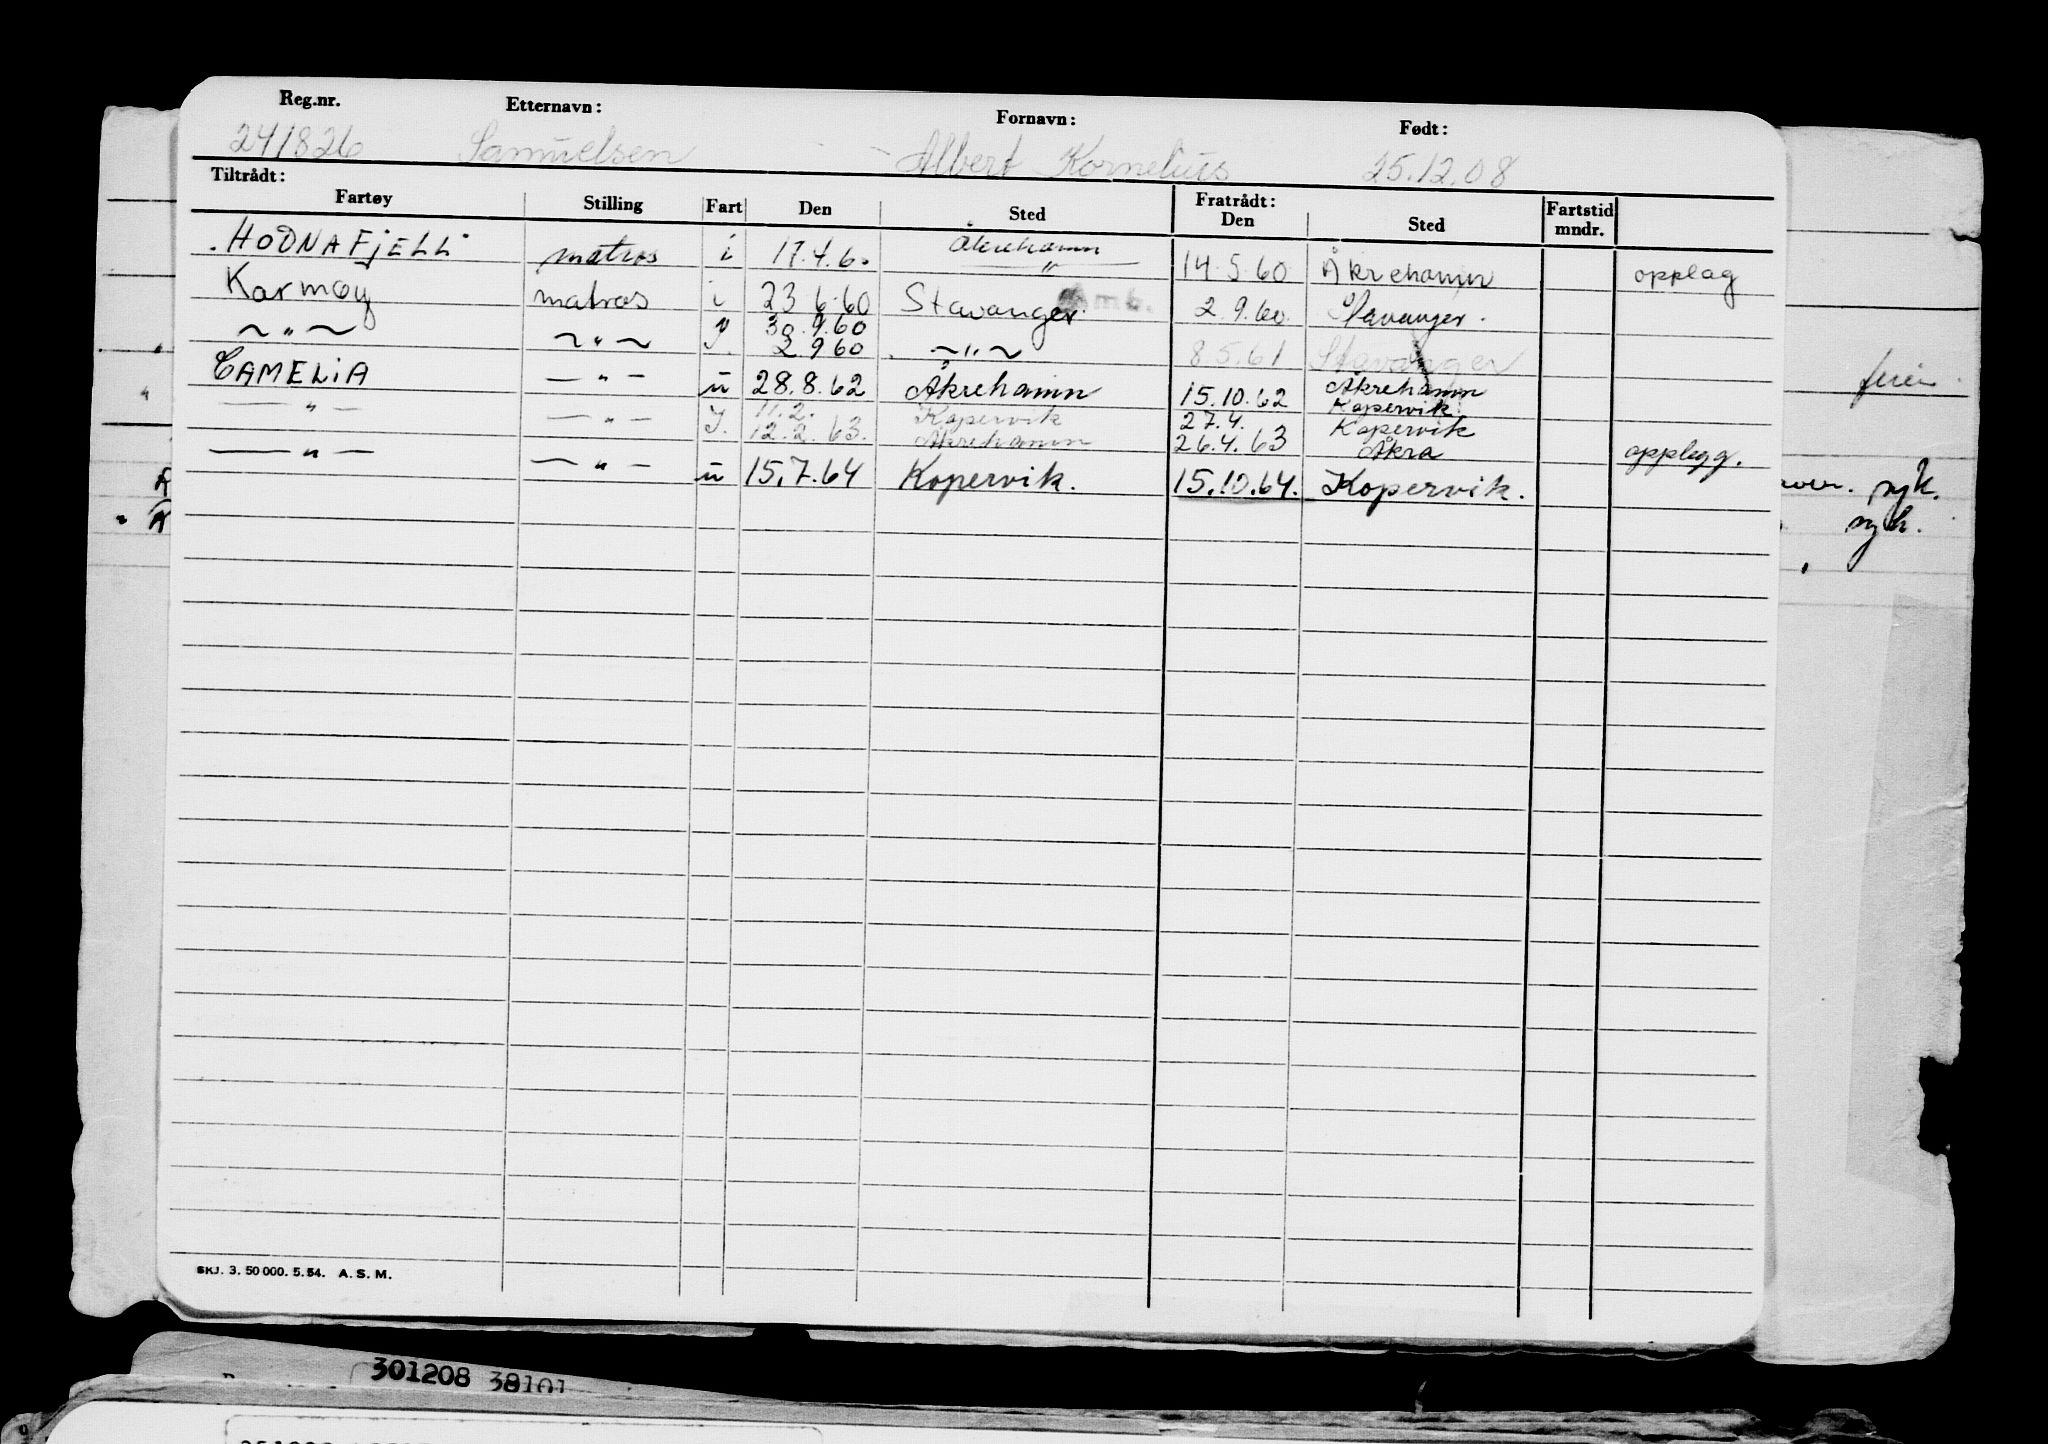 Reg.nr. Etternavn: Fornavn: Født:
241826 Samuelsen Albert Kornelius 25.12.08
Tiltrådt: Fratrådt:
Fartøy Stilling Fart Den Sted Den Sted Fartstid mndr.
"HODNAFJELL" matros i 17.4.60 Åkrehamn 14.5.60 Åkrehamn opplag
"
Karmøy matros i 23.6.60 Stavanger 2.9.60. Stavanger.
~ " ~ ~ " ~ 30.9.60
2.9.60 ~ " ~ 8.5.61 Stavanger
CAMELIA — " — u 28.8.62 Åkrehamn 15.10.62 Åkrehamn
Kopervik
— " — — " — I. 11.2. Kopervik 27.4. Kopervik
12.2.63. Åkrehamn 26.4.63 Åkra opplegg.
— " — — " — u 15.7.64 Kopervik. 15.10.64. Kopervik.
ferie
syk.
syk.
SKJ. 3. 50 000. 5. 54. A. S. M.
301208 38101